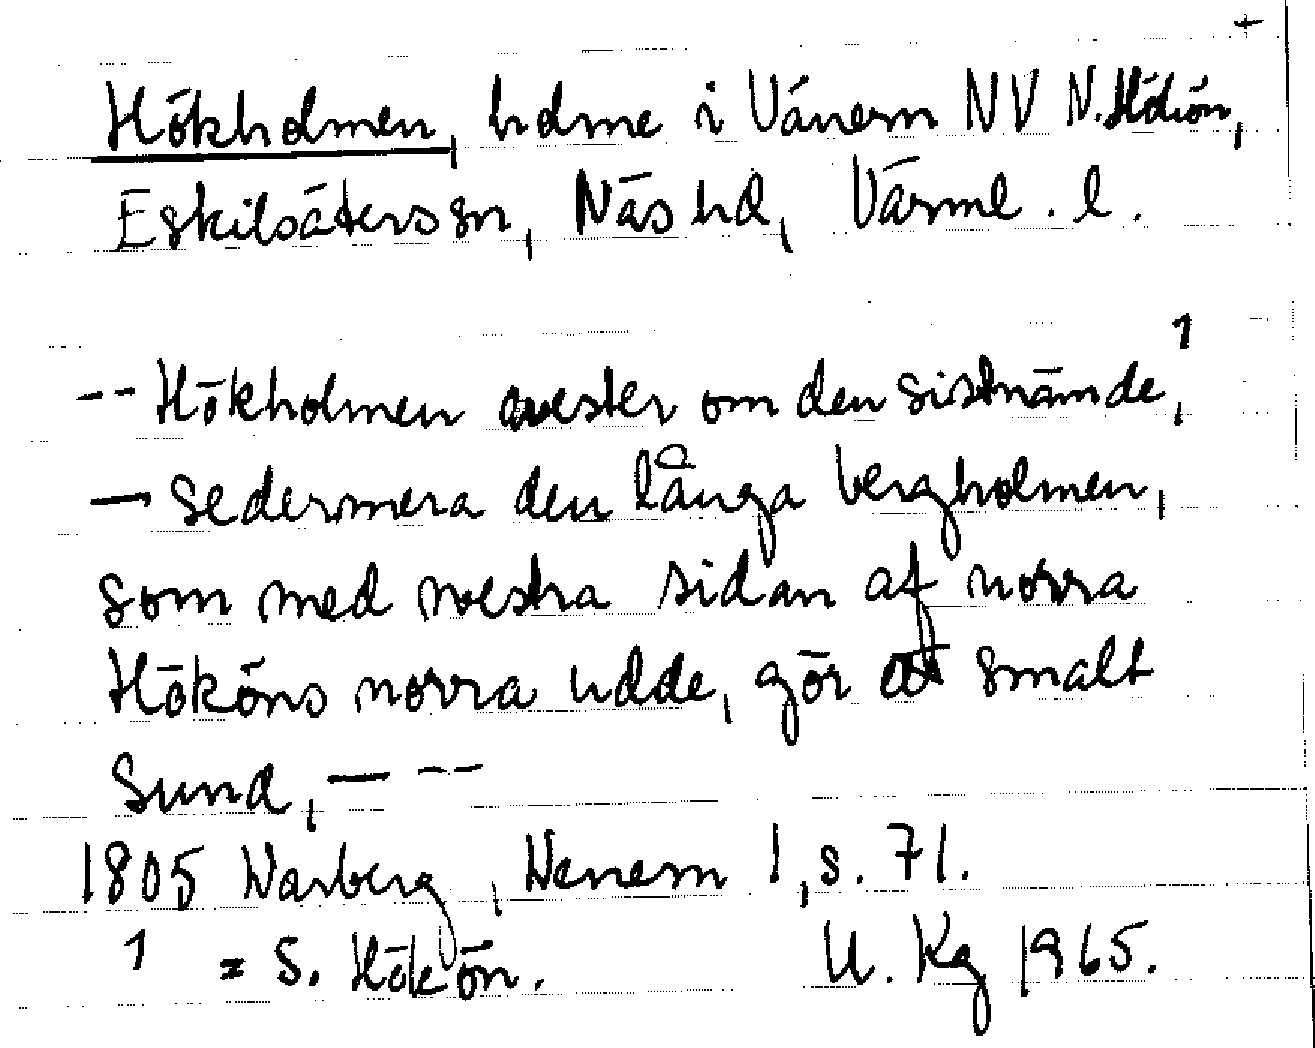 +
Hökholmen, holme i Vänern NV N. Hökön,
Eskilsäters sn, Näs hd, Värml. l.
1
-- Hökholmen wester om den sistnämde,
— Sedermera den långa bergholmen,
som med westra sidan af norra
Hököns norra udde, gör ett smalt
Sund, — --
1805 Warberg, Wenern 1, s. 71.
1 = S. Hökön. U. Kg 1965.